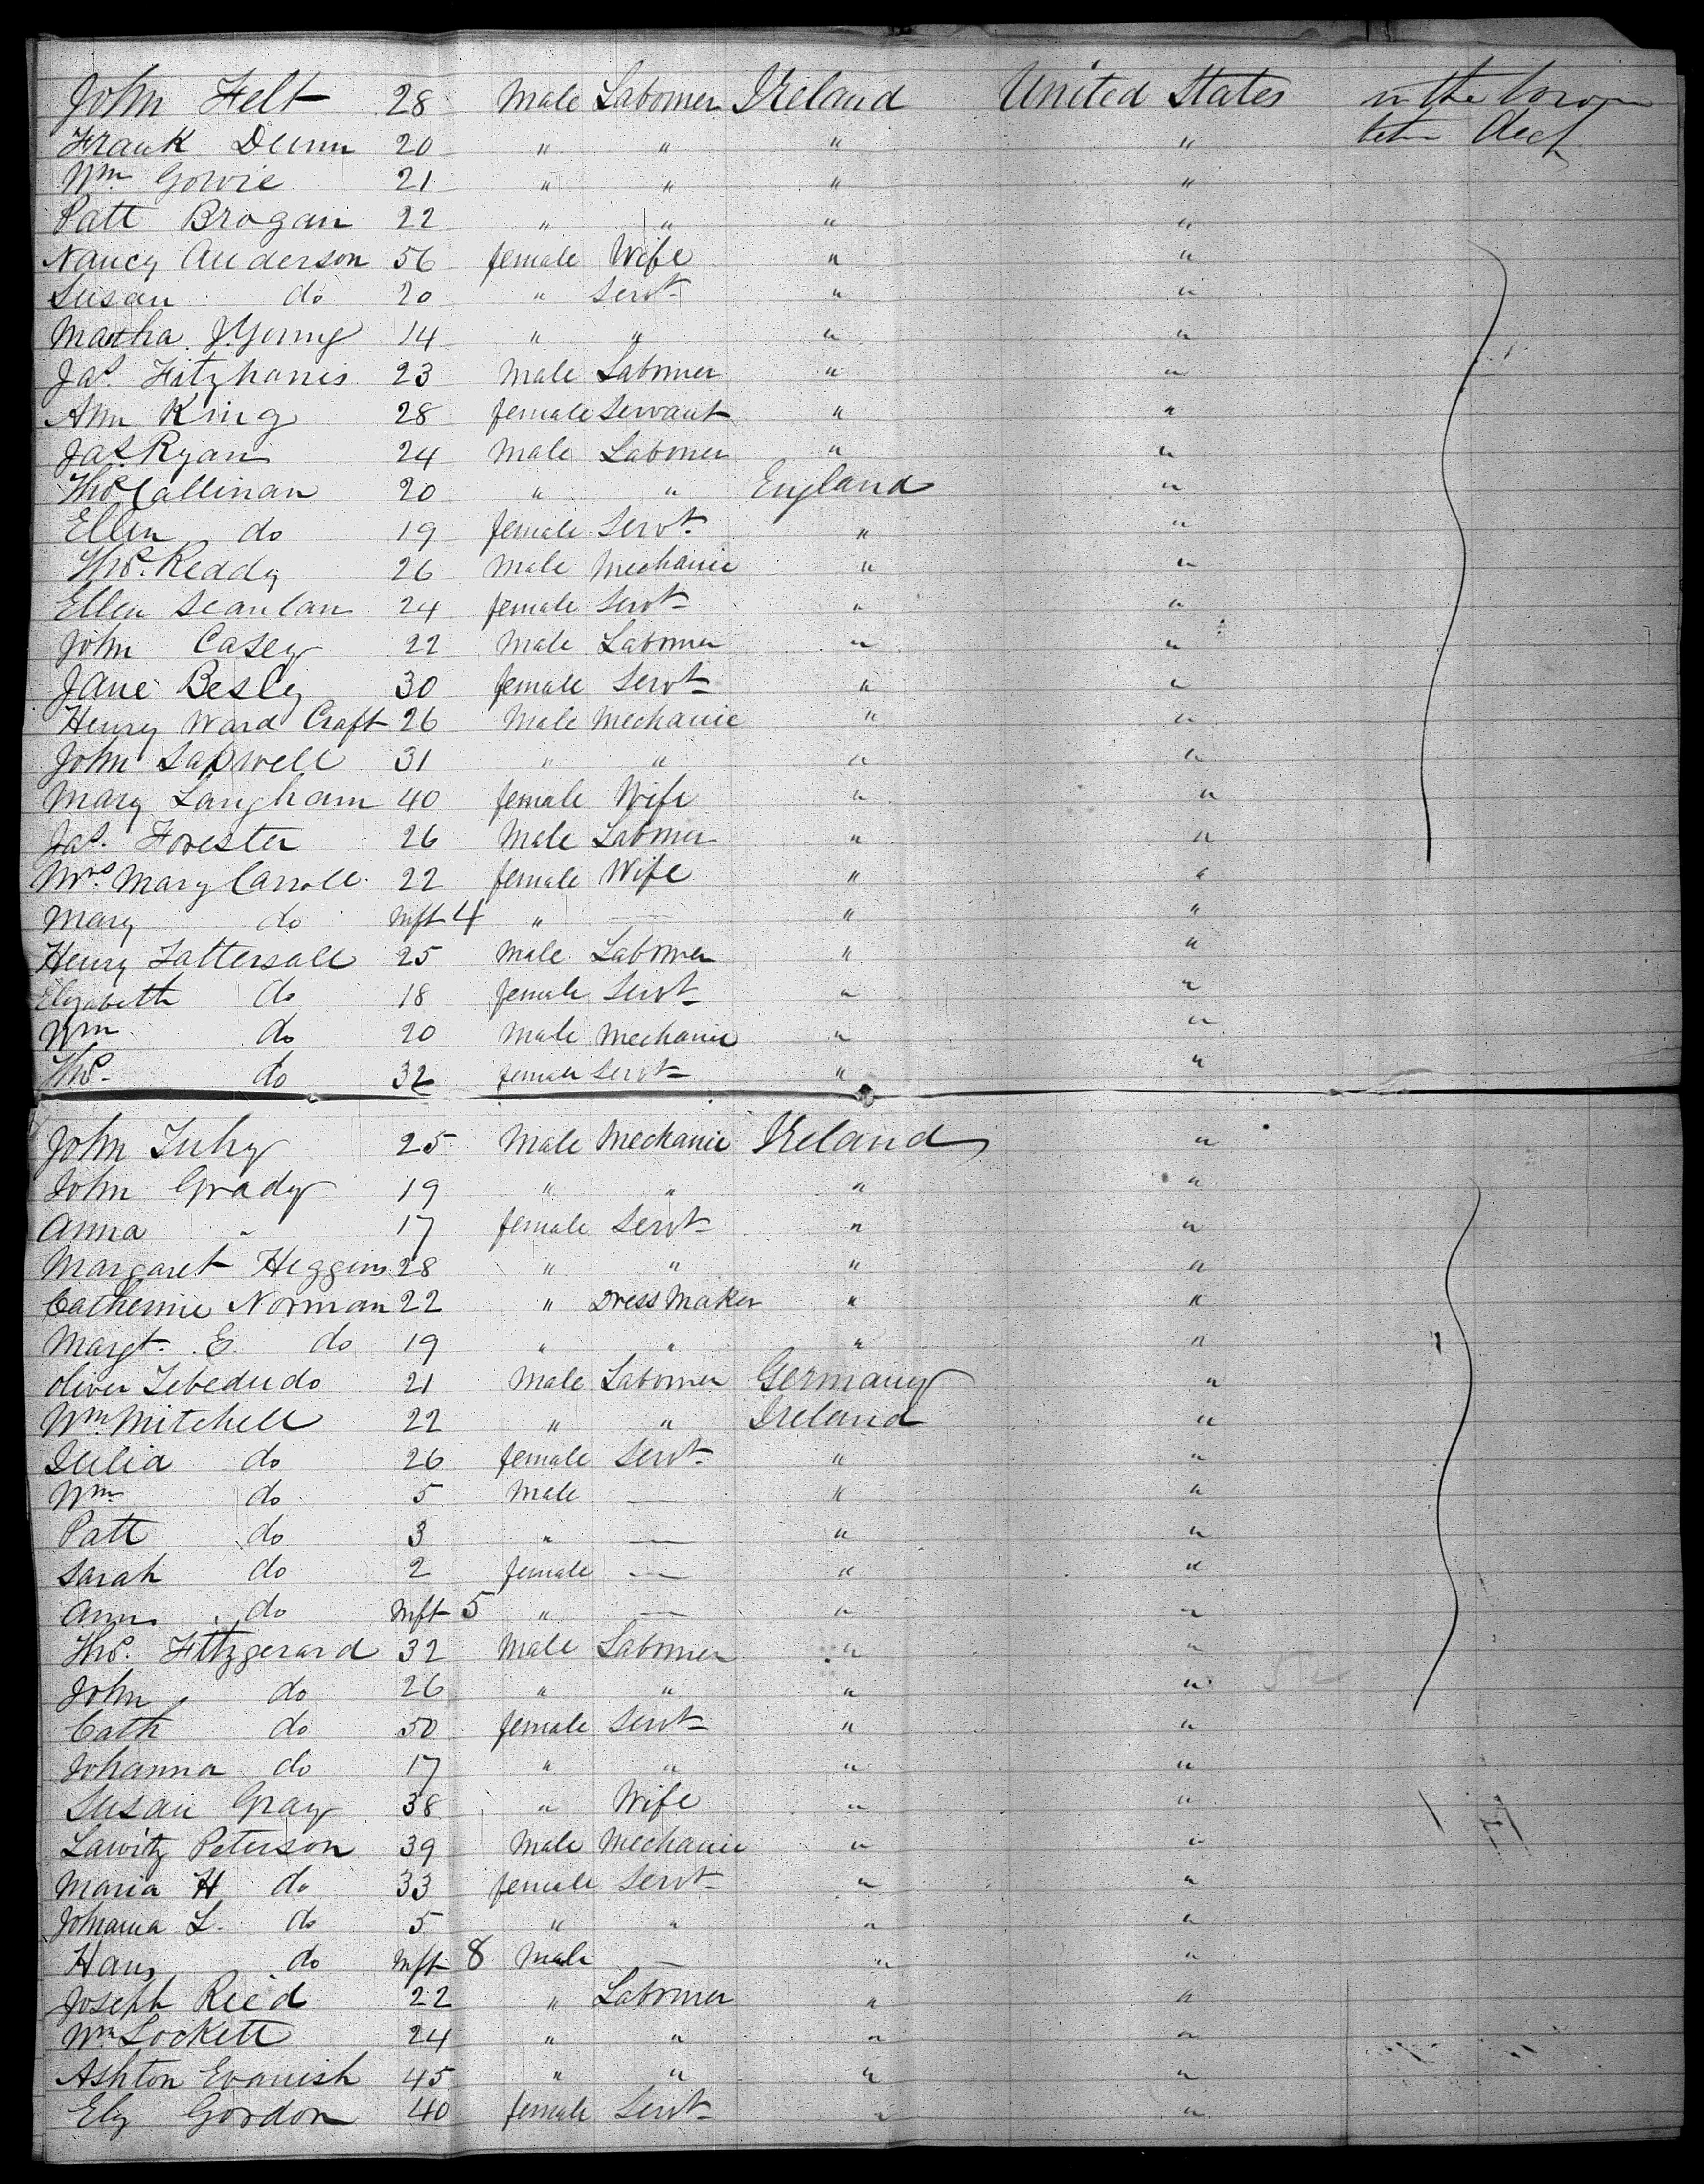 John Felt 28 Male Labourer Ireland United States in the lower
Frank Dunn 20 " " " " betn deck
Wm Gowie 21 " " " "
Patt Brogan 22 " " " "
Nancy Anderson 56 female Wife " "
Susan do 20 " Servt " "
Martha J. Young 14 " " " "
Jas. Fitzharris 23 Male Labourer " "
Ann King 28 female Servant " "
Jas. Ryan 24 Male Labourer " "
Thos Callinan 20 " " England "
Ellen do 19 female Servt. " "
Thos. Reddy 26 Male Mechanic " "
Ellen Scanlan 24 female Servt " "
John Casey 22 Male Labourer " "
Jane Besley 30 female Servt " "
Henry Ward Craft 26 Male Mechanic " "
John Sapwell 31 " " " "
Mary Langham 40 female Wife " "
Jas. Forester 26 Male Labourer " "
Mrs. Mary Carroll 22 female Wife " "
Mary do Inft 4 " — " "
Henry Tattersall 25 Male Labourer " "
Elizabeth do 18 female Servt " "
Wm do 20 Male Mechanic " "
Thos. do 32 female Servt " "
John Tuhy 25 Male Mechanic Ireland "
John Grady 19 " " " "
Anna " 17 female Servt " "
Margaret Heggins 28 " " " "
Catherine Norman 22 " Dress Maker " "
Margt. E. do 19 " " " "
Oliver 21 Male Labourer Germany "
Wm. Mitchell 22 " " Ireland "
Julia do 26 female Servt. " "
Wm do 5 Male — " "
Patt do 3 " — " "
Sarah do 2 female — " "
Ann do Inft 5 " — " "
Thos. Fitzgerard 32 Male Labourer " "
John do 26 " " " "
Cath do 50 female Servt " "
Johanna do 17 " " " "
Susan Gray 38 " Wife " "
Lawitz Peterson 39 Male Mechanic " "
Maria H do 33 female Servt " "
Johanna L. do 5 " " " "
Hans do Inft 8 Male — " "
Joseph Ried 22 " Labourer " "
Wm Lockett 24 " " " "
Ashton Evanish 45 " " " "
Elz Gordon 40 female Servt " "